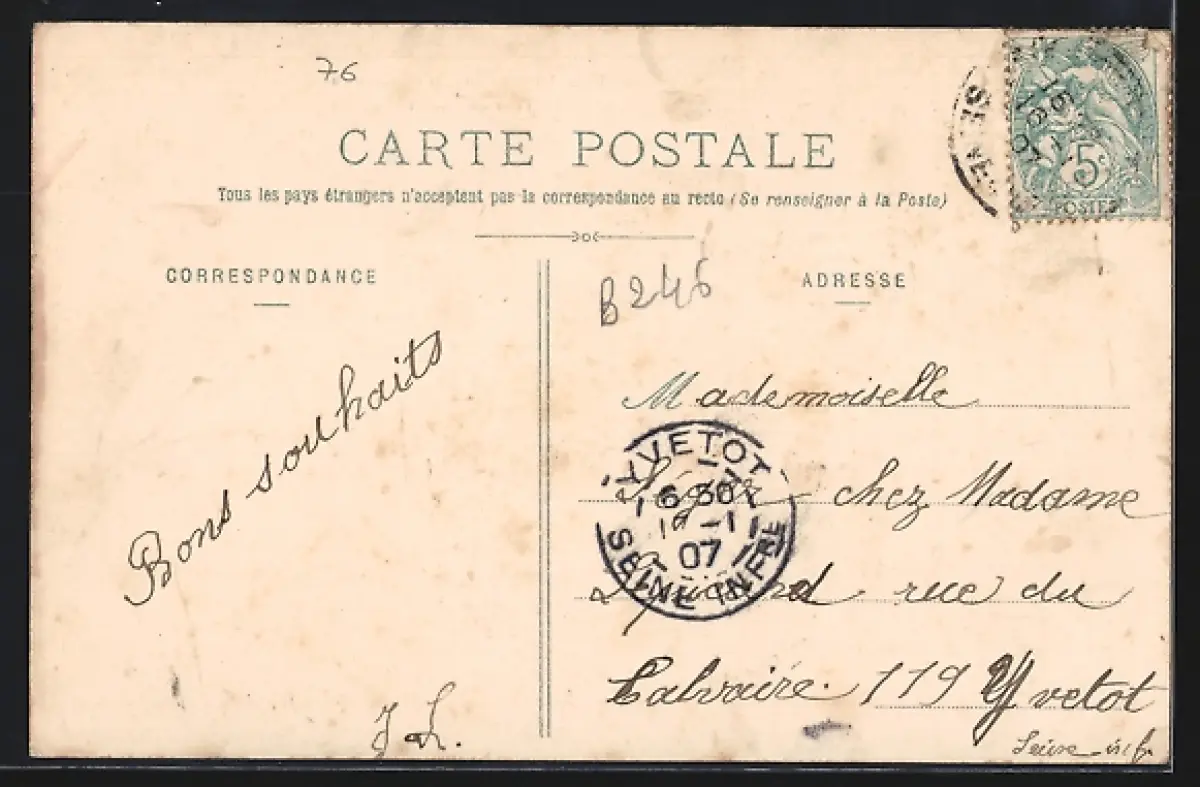 76
CARTE POSTALE
Tous les pays étrangers n'acceptent pas la correspondance au recto (Se renseigner à la Poste)
CORRESPONDANCE
ADRESSE
B246
5c
POSTES
Bons souhaits
J L.
Mademoiselle
chez Madame
rue du
Calvaire. 119 Yvetot
YVETOT
6 30
-1
07
SEINE INFRE